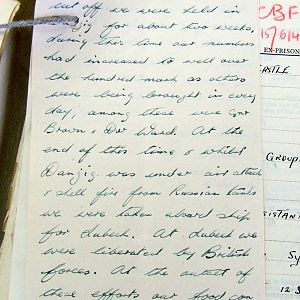 cut off we were held in
zig for about two weeks,
during this time our numbers
had increased to well over
the hundred mark as others
were being brought in every
day; among these were Gnr
Brown & Dvr Ward. At the
end of this time & whilst
Danzig was under air attack
& shell fire from Russian tanks
we were taken aboard ship
for Lubeck. At Lubeck we
were liberated by British
forces. At the outset of
these efforts our food con
CBF
15/6/4
EX-PRISON
CASTLE
GROUP
SISTANT
Sy
12.3